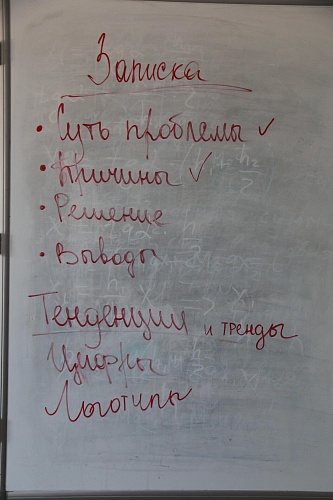 Записка
• Суть проблемы ✓
• Причины ✓
• Решение
• Выводы
Тенденции и тренды
Цифры
Логотипы